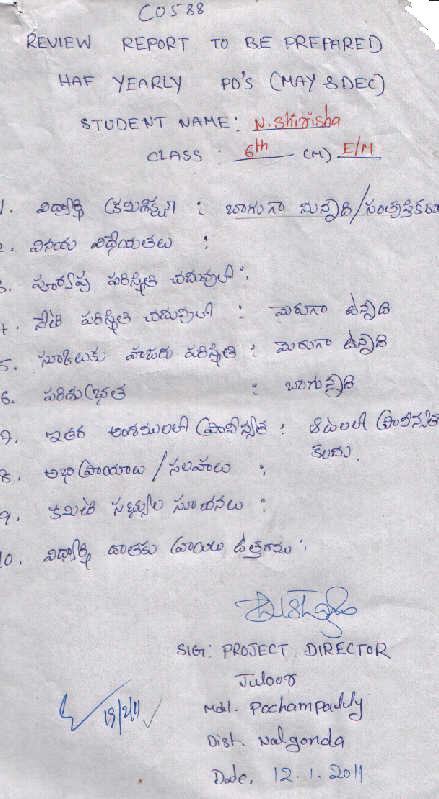 C0588
REVIEW REPORT TO BE PREPARED
HAF YEARLY PD'S (MAY & DEC)
STUDENT NAME: N. Shirisha
CLASS : 6th (M) E/M
1. విద్యార్థి క్రమశిక్షణ : బాగుగా ఉన్నాది/సంతృప్తికరం
2. వినయ విధేయతలు :
3. పూర్వపు పరిస్థితి చదువులో :
4. నేటి పరిస్థితి చదువులో : మెరుగా ఉన్నాది
5. స్కూలుకు హాజరు పరిస్థితి : మెరుగా ఉన్నాది
6. పరిశుభ్రత : బాగున్నాది
7. ఇతర అంశములలో ప్రావీణ్యత : ఆటలలో ప్రావీణ్యత
కలదు.
8. అభిప్రాయాలు / సలహాలు :
9. కమిటి సభ్యుల సూచనలు :
10. విద్యార్థి దాతకు వ్రాయు ఉత్తరము :
SIG: PROJECT DIRECTOR
Juloor
Mdl. Pochampally
Dist. Nalgonda
Date. 12.1.2011
19/2/11